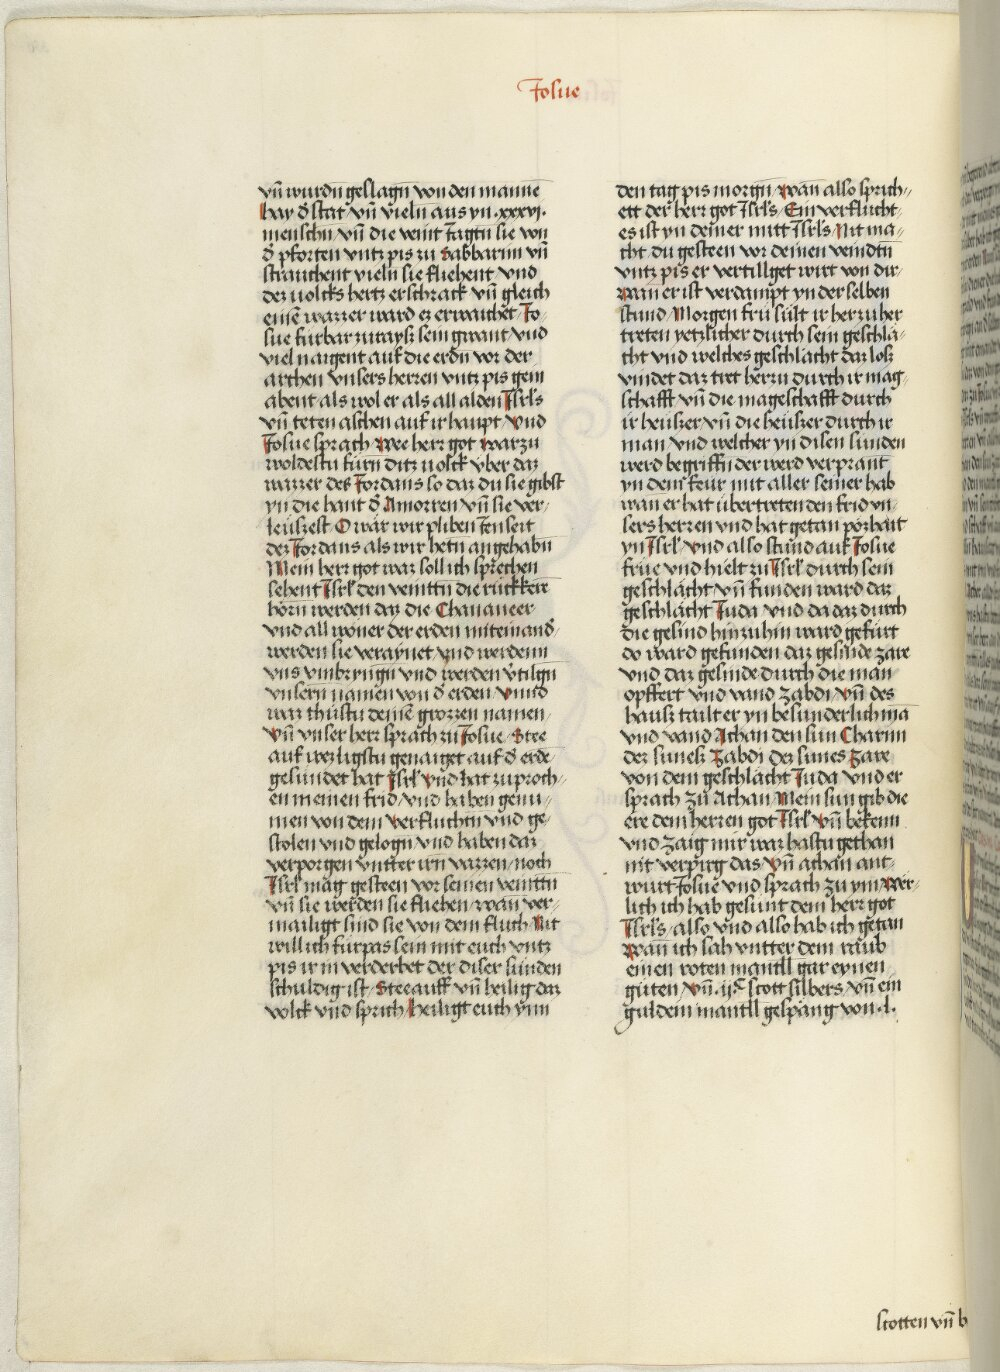 Josue
vn̄ wurdn̄ geslagn̄ von den manne
hay d̾ stat vn̄ vieln̄ aus yn .xxxvj.
menschn̄ vn̄ die veint Jagtn̄ sie von
d̾ pforten vntz pis zu Sabbarim vn̄
strauchent vieln̄ sie fliehent vnd
dez uolcks hertz erschrack vn̄ gleich
eine͞ wazzer ward ez erwaichet / Jo-
sue fürbar zurayß sein gwant / vnd
viel naigent auf die erdn̄ vor der
archen vnsers herren vntz pis gem
abent als wol er als all alden Jsrl̄s
vn̄ teten aschen auf ir haupt / vnd
Josue sprach Wee herr got warzu
woldestu fürn̄ ditz uolck v̈ber daz
wazzer dez Jordans so daz du sie gibst
yn die hant d̾ Amorren vn̄ sie ver-
leuszest O wär wir pliben Jenseit
dez Jordans als wir hetn̄ angehabn̄
Mein herr got waz soll ich sprechen
sehent Jsrl̄ den veintn̄ die rückkere
hörn̄ werden daz die Chananeer
vnd all woner der erden miteinand̾
werden sie veraynet / vnd werdenn
vns vmbryngn̄ vnd werden v̾tilgn̄
vnsern̄ namen von d̾ erden / vnnd
waz thüstu deine͞ grozzen namen /
Vn̄ vnser herr sprach zu Josue / Stee
auf wez ligstu genaiget auf d̾ erde
gesündet hat Jsrl̄ vnd hat zuproch-
en meinen frid / vnd haben genu-
men von dem verfluchtn̄ vnd ge-
stolen vnd gelogn̄ vnd haben daz
verporgen vntter irn̄ vazzen / noch
Jsrl̄ mag gesteen vor seinen veintn̄
vn̄ sie werden sie fliehen / wan ver-
mailigt sind sie von dem fluch / Nit
will ich fürpas sein mit euch vntz
pis ir in verderbet der diser sünden
schuldig ist / Stee auff vn̄ heilig daz
volck vnd sprich / heiligt euch ÿnn
den tag pis morgn̄ / wan also sprich-
ett der herr got Jsrl̄s / Ein verflucht-
es ist yn deiner mitt Jsrl̄s / Nit ma-
cht du gesteen vor deinen veindtn̄
vntz pis er vertillget wirt von dir /
wan er ist verdampt yn der selben
stund / Morgen frü sült ir herzu her
treten yetzlicher durch sein geschlä-
cht vnd welches geschlächt daz losz
vindet daz tret herzu durch ir mag-
schafft vn̄ die mageschafft durch
ir heuszer vn̄ die heüszer durch ir
man vnd welcher yn disen sünden
werd begriffn̄ der werd verprant
yn dem feür mit aller seiner hab
wan er hat übertreten den frid vn-
sers herzen vnd hat getan pözhait
yn Jsrl̄ / vnd also stünd auf Josue
früe vnd hielt zu Jsrl̄ durch sein
geschlächt / vn̄ funden ward daz
geschlächt Juda vnd da daz durch
die gesind hinzuhin ward gefürt
do ward gefunden daz gesinde zare
vnd daz gesinde durch die man
opffert vnd vand zabdi / vn̄ des
hausz tailt er yn besunderlich mā
vnd vand Achan den sun Charmi
dez sunesz Zabdi dez sunes Zare
von dem geschlächt Juda vnd er
sprach zu Achan / Mein sun gib die
ere dem herren got Jsrl̄ vn̄ bekenn
vnd zaig mir waz hastu gethan
nit verpirg das Vn̄ achan ant-
wurt Josue vnd sprach zu ym Wer-
lich ich hab gesünt dem herr got
Jsrl̄s / also vnd also hab ich getan
wan ich sah vntter dem räub
einen roten mantll gar eynen
güten / vn̄ .ij.c scott silbers / vn̄ ein
guldein mantll gespäng von .l.
scotten vn̄ b